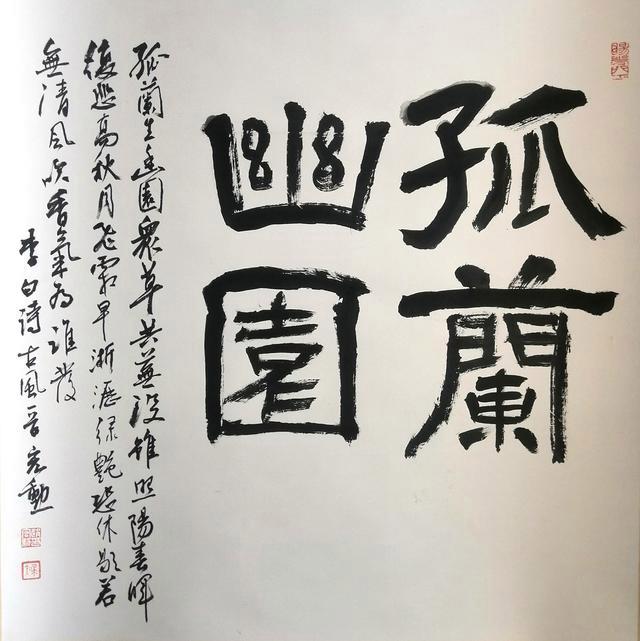 孤蘭
幽園
孤蘭生幽園眾草共蕪沒雖照陽春暉
復悲高秋月飛霜早淅瀝綠艷恐休歇若
無清風吹香氣為誰發
李白詩古風